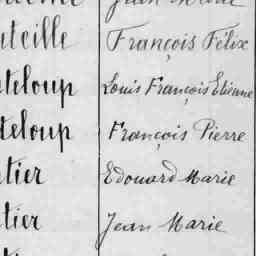 uteille François Félix
nteloup Louis François Etienne
teloup François Pierre
tier Edouard Marie
tier Jean Marie